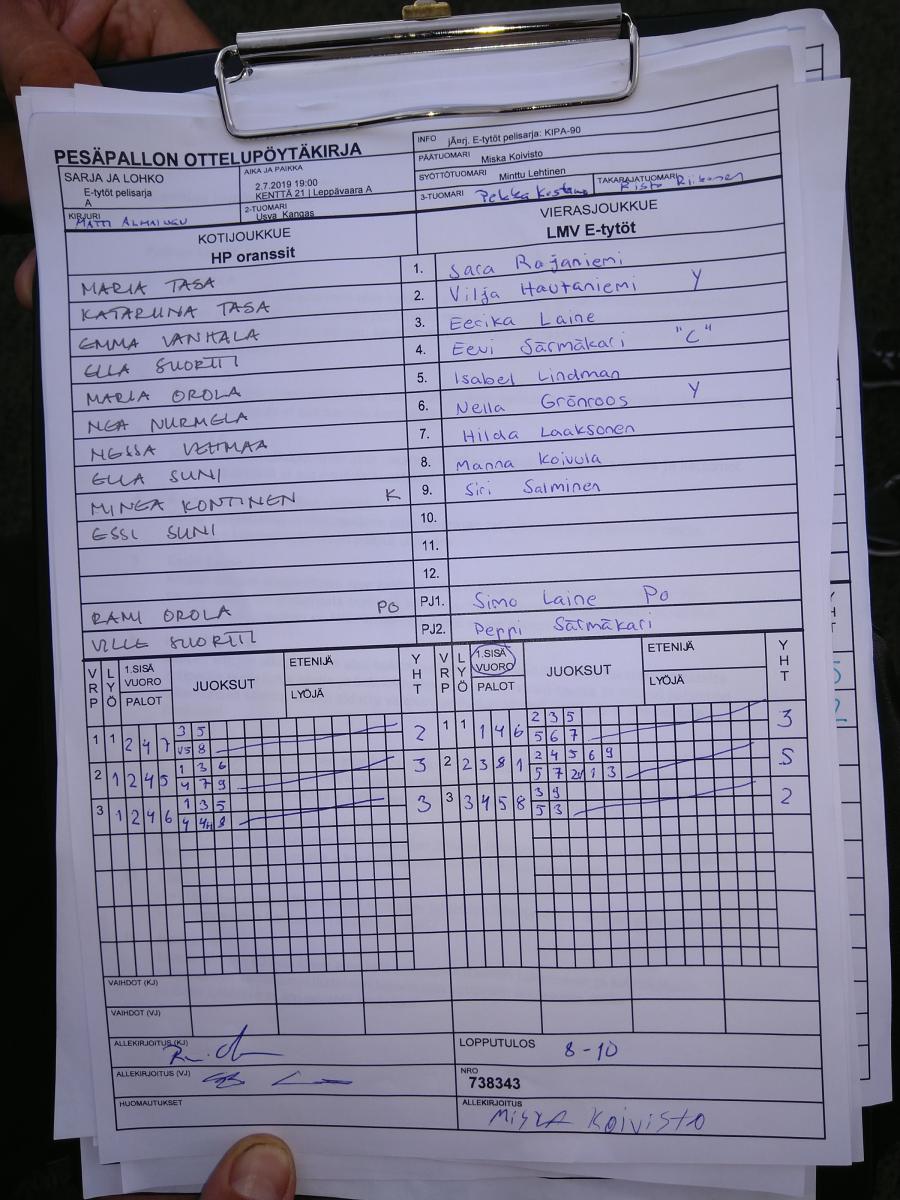 PESÄPALLON OTTELUPÖYTÄKIRJA
INFO jÃ¤rj. E-tytöt pelisarja: KIPA-90
PÄÄTUOMARI Miska Koivisto
SYÖTTÖTUOMARI Minttu Lehtinen
3-TUOMARI Pekka TAKARAJATUOMARI Risto Riikonen
SARJA JA LOHKO
E-tytöt pelisarja
A
AIKA JA PAIKKA
2.7.2019 19:00
KENTTÄ 21 | Leppävaara A
KIRJURI MATTI
2-TUOMARI
Usva Kangas
KOTIJOUKKUE
HP oranssit
VIERASJOUKKUE
LMV E-tytöt
MARIA TASA 1. Sara Rajaniemi
KATARIINA TASA 2. Vilja Hautaniemi Y
EMMA VANHALA 3. Eerika Laine
ELLA SUORTTI 4. Eevi Särmäkari "C"
MARIA OROLA 5. Isabel Lindman
NEA NURMELA 6. Nella Grönroos Y
NESSA VEHMAA 7. Hilda Laaksonen
ELLA SUNI 8. Manna Koivula
MINEA KONTINEN K 9. Siri Salminen
ESSI SUNI 10.
11.
12.
RAMI OROLA PO PJ1. Simo Laine Po
VILLE SUORTTI PJ2. Peppi Särmäkari
VRP LYÖ 1.SISÄ VUORO PALOT JUOKSUT ETENIJÄ LYÖJÄ YHT VRP LYÖ 1.SISÄ VUORO PALOT JUOKSUT ETENIJÄ LYÖJÄ YHT
1 1 2 4 7 3 5 2 1 1 1 4 6 2 3 5 3
V5 8 5 6 7
2 1 2 4 5 1 3 6 3 2 2 3 8 1 2 4 5 6 9 5
4 7 9 5 7 1 3
3 1 2 4 6 1 3 5 3 3 3 4 5 8 3 9 2
4 5 3
VAIHDOT (KJ)
VAIHDOT (VJ)
ALLEKIRJOITUS (KJ) LOPPUTULOS 8-10
ALLEKIRJOITUS (VJ) NRO
738343
HUOMAUTUKSET ALLEKIRJOITUS
MISKA KOIVISTO